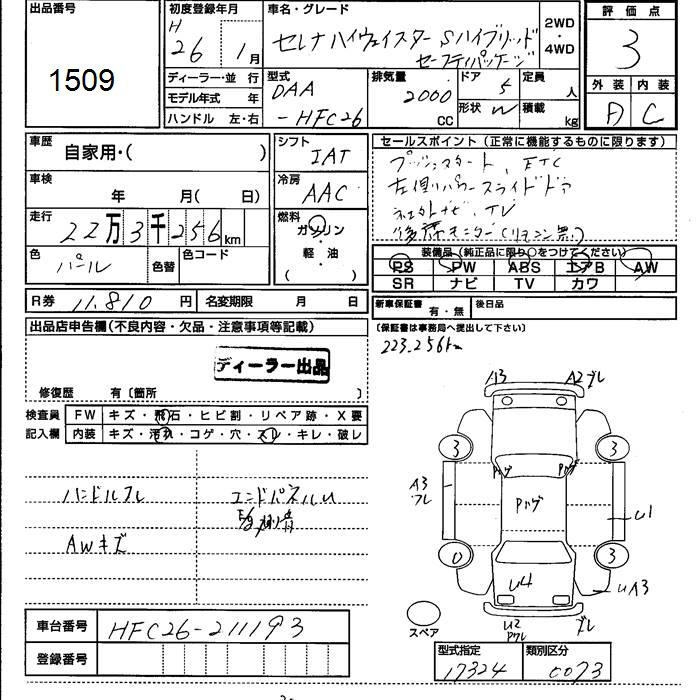 出品番号
1509
初度登録年月
H
26年 1月
ディーラー・並 行
モデル年式 年
ハンドル 左・右
車名・グレード
セレナ ハイウェイスター Sハイブリッド
セーフティパッケージ
2WD
・
4WD
型式
DAA
-HFC26
排気量
2000
CC
ドア 5
形状 W
定員 人
積載 kg
評価点
3
外装 内装
D C
車歴
自家用・( )
車検
年 月( 日)
走行
22万3千256km
色
パール
色替
色コード
シフト
IAT
冷房
AAC
燃料
ガソリン
・
軽油
( )
R券 11,810 円
名変期限 月 日
セールスポイント(正常に機能するものに限ります)
プッシュスタート、ETC
左側パワースライドドア
TV
後席モニター(リモコン無)
装備品(純正品に限り○をつけてください)
PS PW ABS エアB AW
SR ナビ TV カワ
新車保証書 有・無
後日品
(保証書は事務局へ提出して下さい)
223,256km
出品店申告欄(不良内容・欠品・注意事項等記載)
ディーラー出品
修復歴 有〔箇所 〕
検査員
記入欄
FW キズ・飛石・ヒビ割・リペア跡・X要
内装 キズ・汚れ・コゲ・穴・スレ・キレ・破レ
ハンドルスレ
エンドパネルU
AWキズ
A3 A2 ブレ
3 3
Pツゲ Pツゲ
A3
Pツゲ
U1
0 3
U4
UA3
U2
スペア
車台番号 HFC26-211193
登録番号
型式指定 17324
類別区分 0073